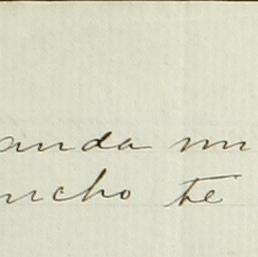 anda mi
ucho te